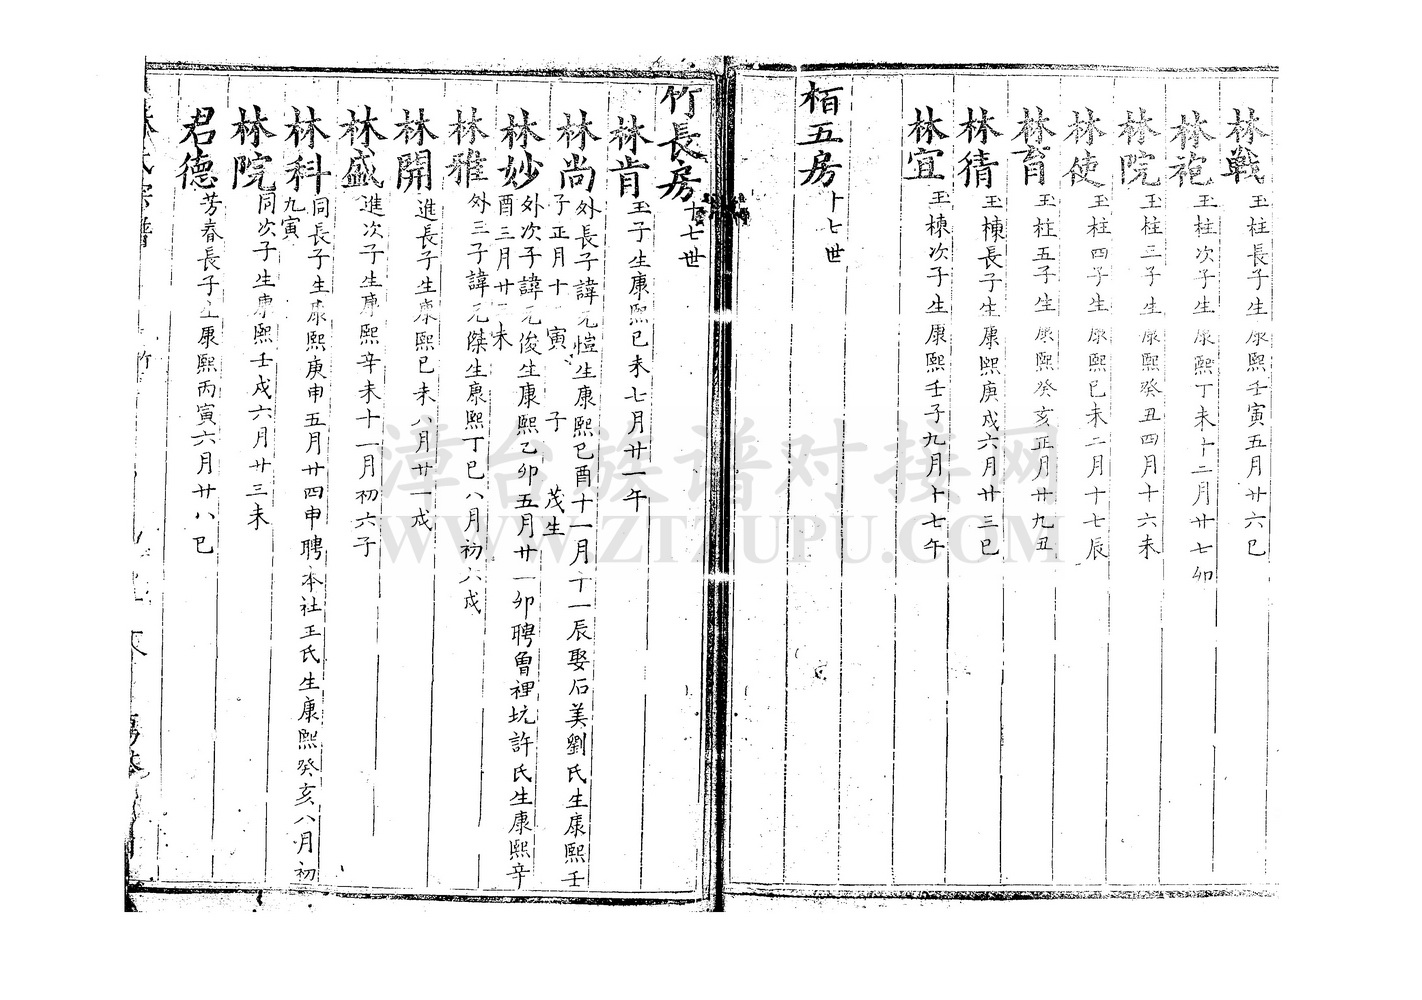 林戰 玉柱長子生康熙壬寅五月廿六巳
林袍 玉柱次子生康熙丁未十二月廿七卯
林院 玉柱三子生康熙癸丑四月十六未
林使 玉柱四子生康熙巳未二月十七辰
林育 玉柱五子生康熙癸亥正月廿九丑
林猜 玉棟長子生康熙庚戌六月廿三巳
林宜 玉棟次子生康熙壬子九月十七午
栢五房 十七世
竹長房 十七世
林肯 玉子生康熙巳未七月廿一午
林尚 外長子諱元愷生康熙巳酉十一月十一辰娶石美劉氏生康熙壬
子正月十 寅 子 茂生
林妙 外次子諱元俊生康熙乙卯五月廿一卯聘曾裡坑許氏生康熙辛
酉三月廿 未
林雅 外三子諱元傑生康熙丁巳八月初六戌
林開 進長子生康熙巳未八月廿一戌
林盛 進次子生康熙辛未十一月初六子
林科 同長子生康熙庚申五月廿四申聘本社王氏生康熙癸亥八月初
九寅
林院 同次子生康熙壬戌六月廿三未
君德 芳春長子生康熙丙寅六月廿八巳
林氏宗譜 竹
漳台族谱对接网
WWW.ZTZUPU.COM